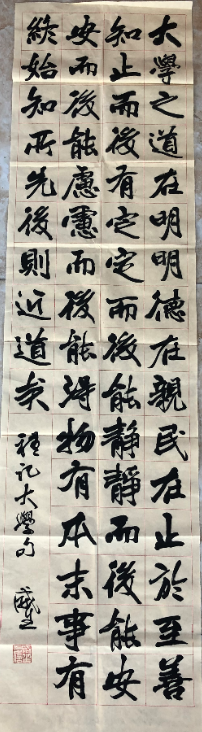 大學之道在明明德在親民在止於至善
知止而後有定定而後能靜靜而後能安
安而後能慮慮而後能得物有本末事有
終始知所先後則近道矣
禮记大學句